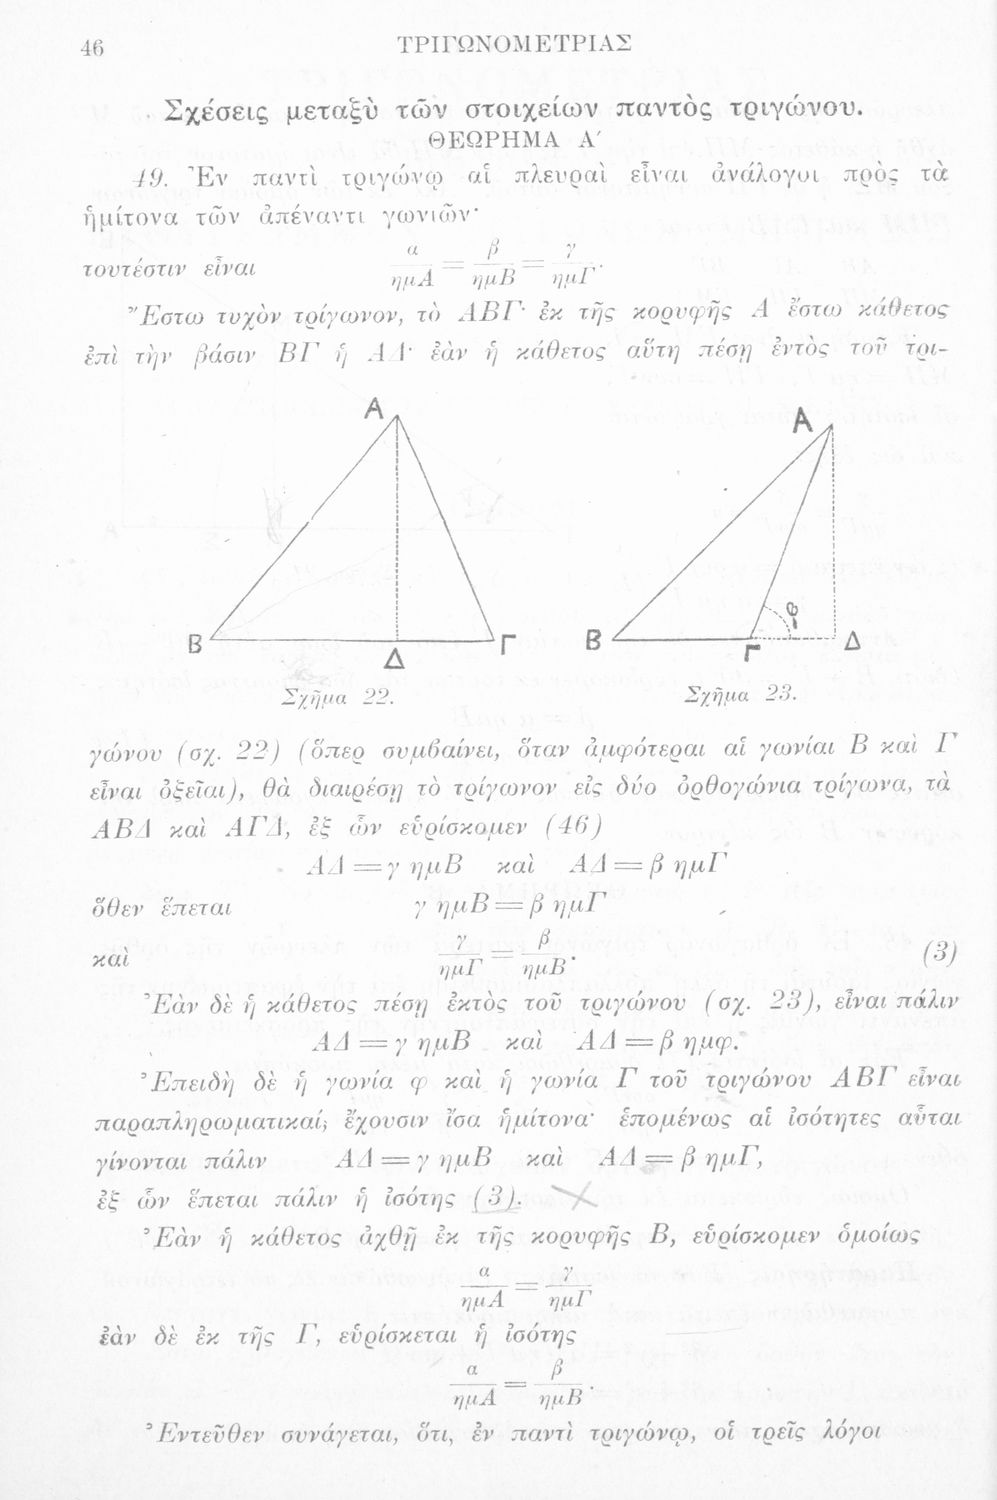 46 ΤΡΙΓΩΝΟΜΕΤΡΙΑΣ
Σχέσεις μεταξὺ τῶν στοιχείων παντὸς τριγώνου.
ΘΕΩΡΗΜΑ Α΄
49. Ἐν παντὶ τριγώνῳ αἱ πλευραὶ εἶναι ἀνάλογοι πρὸς τὰ
ἡμίτονα τῶν ἀπέναντι γωνιῶν·
τουτέστιν εἶναι α/ημΑ = β/ημΒ = γ/ημΓ.
Ἔστω τυχὸν τρίγωνον, τὸ ΑΒΓ· ἐκ τῆς κορυφῆς Α ἔστω κάθετος
ἐπὶ τὴν βάσιν ΒΓ ἡ ΑΔ· ἐὰν ἡ κάθετος αὕτη πέσῃ ἐντὸς τοῦ τρι-
Α
Β
Δ
Γ
Α
Β
Γ
φ
Δ
Σχῆμα 22.
Σχῆμα 23.
γώνου (σχ. 22) (ὅπερ συμβαίνει, ὅταν ἀμφότεραι αἱ γωνίαι Β καὶ Γ
εἶναι ὀξεῖαι), θὰ διαιρέσῃ τὸ τρίγωνον εἰς δύο ὀρθογώνια τρίγωνα, τὰ
ΑΒΔ καὶ ΑΓΔ, ἐξ ὧν εὑρίσκομεν (46)
ΑΔ = γ ημΒ καὶ ΑΔ = β ημΓ
ὅθεν ἕπεται γ ημΒ = β ημΓ
καὶ γ/ημΓ = β/ημΒ. (3)
Ἐὰν δὲ ἡ κάθετος πέσῃ ἐκτὸς τοῦ τριγώνου (σχ. 23), εἶναι πάλιν
ΑΔ = γ ημΒ καὶ ΑΔ = β ημφ.
Ἐπειδὴ δὲ ἡ γωνία φ καὶ ἡ γωνία Γ τοῦ τριγώνου ΑΒΓ εἶναι
παραπληρωματικαί, ἔχουσιν ἴσα ἡμίτονα· ἑπομένως αἱ ἰσότητες αὗται
γίνονται πάλιν ΑΔ = γ ημΒ καὶ ΑΔ = β ημΓ,
ἐξ ὧν ἕπεται πάλιν ἡ ἰσότης (3).
Ἐὰν ἡ κάθετος ἀχθῇ ἐκ τῆς κορυφῆς Β, εὑρίσκομεν ὁμοίως
α/ημΑ = γ/ημΓ
ἐὰν δὲ ἐκ τῆς Γ, εὑρίσκεται ἡ ἰσότης
α/ημΑ = β/ημΒ.
Ἐντεῦθεν συνάγεται, ὅτι, ἐν παντὶ τριγώνῳ, οἱ τρεῖς λόγοι